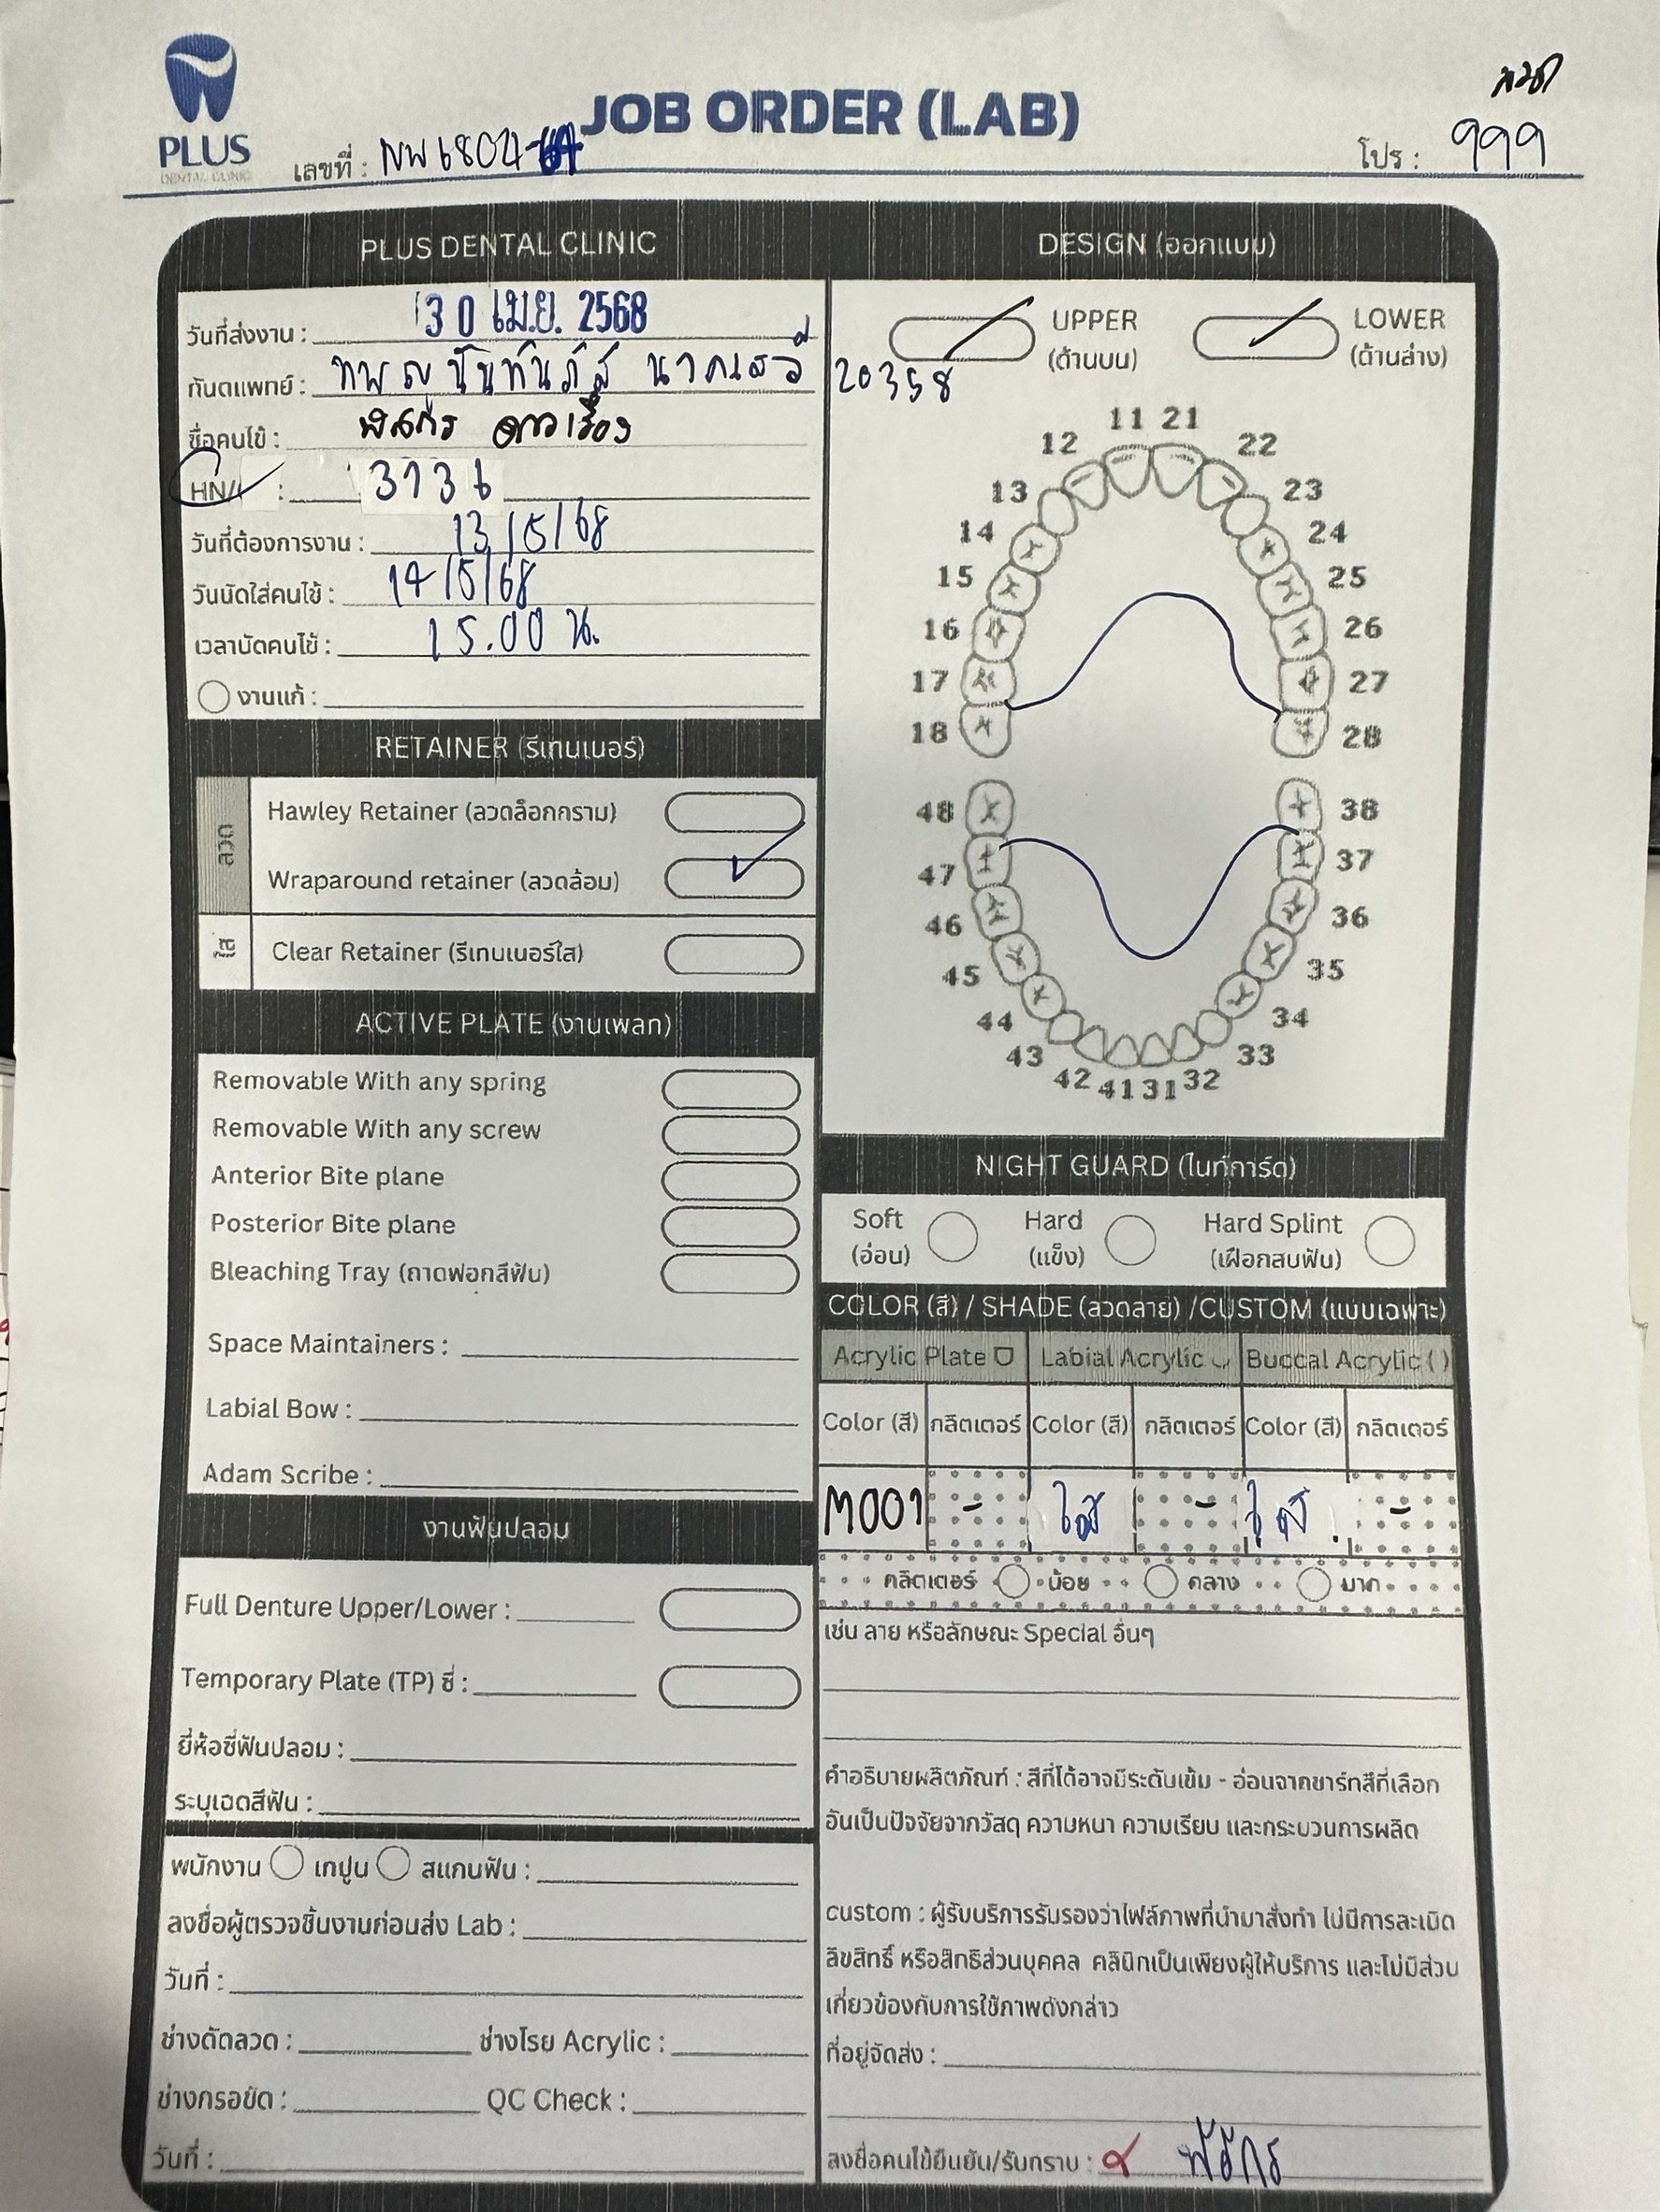 PLUS
DENTAL CLINIC
JOB ORDER (LAB)
เลขที่ : NW6804-
โปร : 999
PLUS DENTAL CLINIC
วันที่ส่งงาน : 30 เม.ย. 2568
ทันตแพทย์ : ทพญ นันทันภัส 20358
ชื่อคนไข้ : ดาวเรือง
HN/ : 3736
วันที่ต้องการงาน : 13/5/68
วันนัดใส่คนไข้ : 14/5/68
เวลานัดคนไข้ : 15.00 น.
งานแก้ :
RETAINER (รีเทนเนอร์)
ลวด
Hawley Retainer (ลวดล็อกกราม)
Wraparound retainer (ลวดล้อม)
ใส
Clear Retainer (รีเทนเนอร์ใส)
ACTIVE PLATE (งานเพลท)
Removable With any spring
Removable With any screw
Anterior Bite plane
Posterior Bite plane
Bleaching Tray (ถาดฟอกสีฟัน)
Space Maintainers :
Labial Bow :
Adam Scribe :
งานฟันปลอม
Full Denture Upper/Lower :
Temporary Plate (TP) ซี่ :
ยี่ห้อซี่ฟันปลอม :
ระบุเฉดสีฟัน :
พนักงาน เทปูน สแกนฟัน :
ลงชื่อผู้ตรวจชิ้นงานก่อนส่ง Lab :
วันที่ :
ช่างดัดลวด : ช่างโรย Acrylic :
ช่างกรอขัด : QC Check :
วันที่ :
DESIGN (ออกแบบ)
UPPER LOWER
(ด้านบน) (ด้านล่าง)
11 21
12 22
13 23
14 24
15 25
16 26
17 27
18 28
48 38
47 37
46 36
45 35
44 34
43 33
42 41 31 32
NIGHT GUARD (ไนท์การ์ด)
Soft Hard Hard Splint
(อ่อน) (แข็ง) (เฝือกสบฟัน)
COLOR (สี) / SHADE (ลวดลาย) /CUSTOM (แบบเฉพาะ)
Acrylic Plate Labial Acrylic Buccal Acrylic ( )
Color (สี) กลิตเตอร์ Color (สี) กลิตเตอร์ Color (สี) กลิตเตอร์
M001 - ใส - ใส -
กลิตเตอร์ น้อย กลาง มาก
เช่น ลาย หรือลักษณะ Special อื่นๆ
คำอธิบายผลิตภัณฑ์ : สีที่ได้อาจมีระดับเข้ม - อ่อนจากชาร์ทสีที่เลือก
อันเป็นปัจจัยจากวัสดุ ความหนา ความเรียบ และกระบวนการผลิต
custom : ผู้รับบริการรับรองว่าไฟล์ภาพที่นำมาสั่งทำ ไม่มีการละเมิด
ลิขสิทธิ์ หรือสิทธิส่วนบุคคล คลินิกเป็นเพียงผู้ให้บริการ และไม่มีส่วน
เกี่ยวข้องกับการใช้ภาพดังกล่าว
ที่อยู่จัดส่ง :
ลงชื่อคนไข้ยืนยัน/รับทราบ :